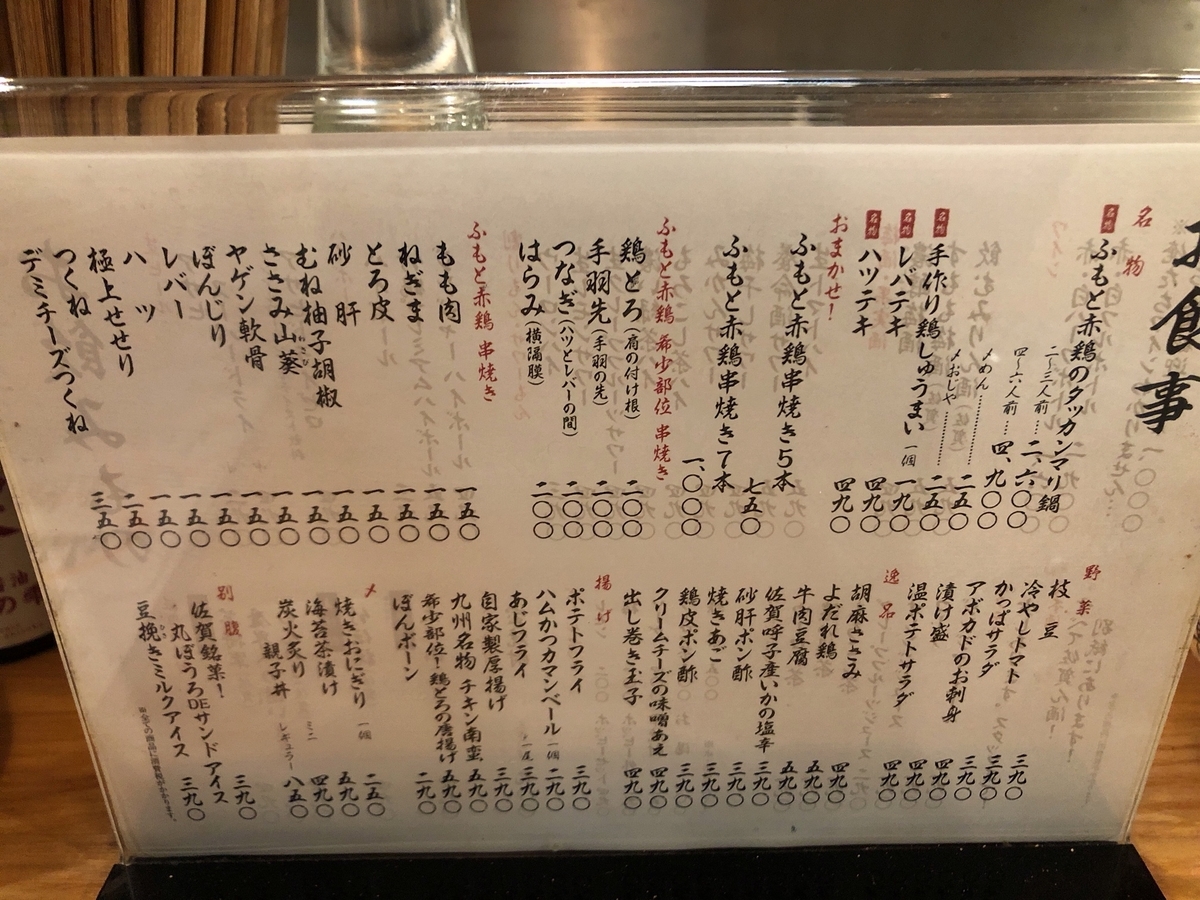 お食事
名物
名物 ふもと赤鶏のタッカンマリ鍋
二〜三人前……二、六〇〇
四〜六人前……四、九〇〇
〆めん……二五〇
〆おじや……二五〇
名物 手作り鶏しゅうまい 一個 一九〇
名物 レバテキ 四九〇
名物 ハツテキ 四九〇
おまかせ!
ふもと赤鶏串焼き5本 七五〇
ふもと赤鶏串焼き7本 一、〇〇〇
ふもと赤鶏 希少部位 串焼き
鶏とろ(肩の付け根) 二〇〇
手羽先(手羽の先) 二〇〇
つなぎ(ハツとレバーの間) 二〇〇
はらみ(横隔膜) 二〇〇
ふもと赤鶏 串焼き
もも肉 一五〇
ねぎま 一五〇
とろ皮 一五〇
砂肝 一五〇
むね柚子胡椒 一五〇
ささみ山葵 一五〇
ヤゲン軟骨 一五〇
ぼんじり 一五〇
レバー 一五〇
ハツ 一五〇
極上せせり 一五〇
つくね 一五〇
デミチーズつくね 三五〇
野菜
枝豆 三九〇
冷やしトマト 三九〇
かっぱサラダ 三九〇
アボカドのお刺身 四九〇
漬け盛 四九〇
温ポテトサラダ 四九〇
逸品
胡麻ささみ 四九〇
よだれ鶏 五九〇
牛肉豆腐 五九〇
佐賀呼子産いかの塩辛 三九〇
砂肝ポン酢 三九〇
焼きあご 三九〇
鶏皮ポン酢 三九〇
クリームチーズの味噌あえ 四九〇
出し巻き玉子 四九〇
揚げ
ポテトフライ 三九〇
ハムかつカマンベール 一個 二九〇
あじフライ 一尾 三九〇
自家製厚揚げ 三九〇
九州名物 チキン南蛮 五九〇
希少部位!鶏とろの唐揚げ 五九〇
ぼんボーン 二九〇
〆
焼きおにぎり 一個 二五〇
海苔茶漬け 五九〇
炭火炙り親子丼 ミニ 四九〇
レギュラー 八五〇
別腹
佐賀銘菓!
丸ぼうろDEサンドアイス 三九〇
豆挽きミルクアイス 三九〇
※全ての商品に消費税がかかります。